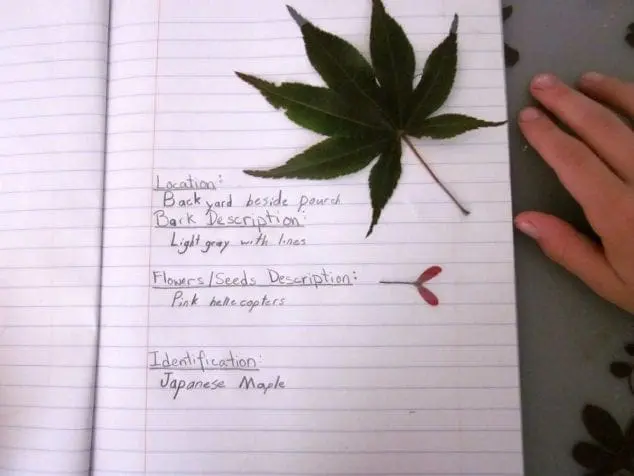 Location:
Back yard beside pourch
Bark Description:
Light gray with lines
Flowers/Seeds Description:
Pink hellecopters
Identification:
Japanese Maple